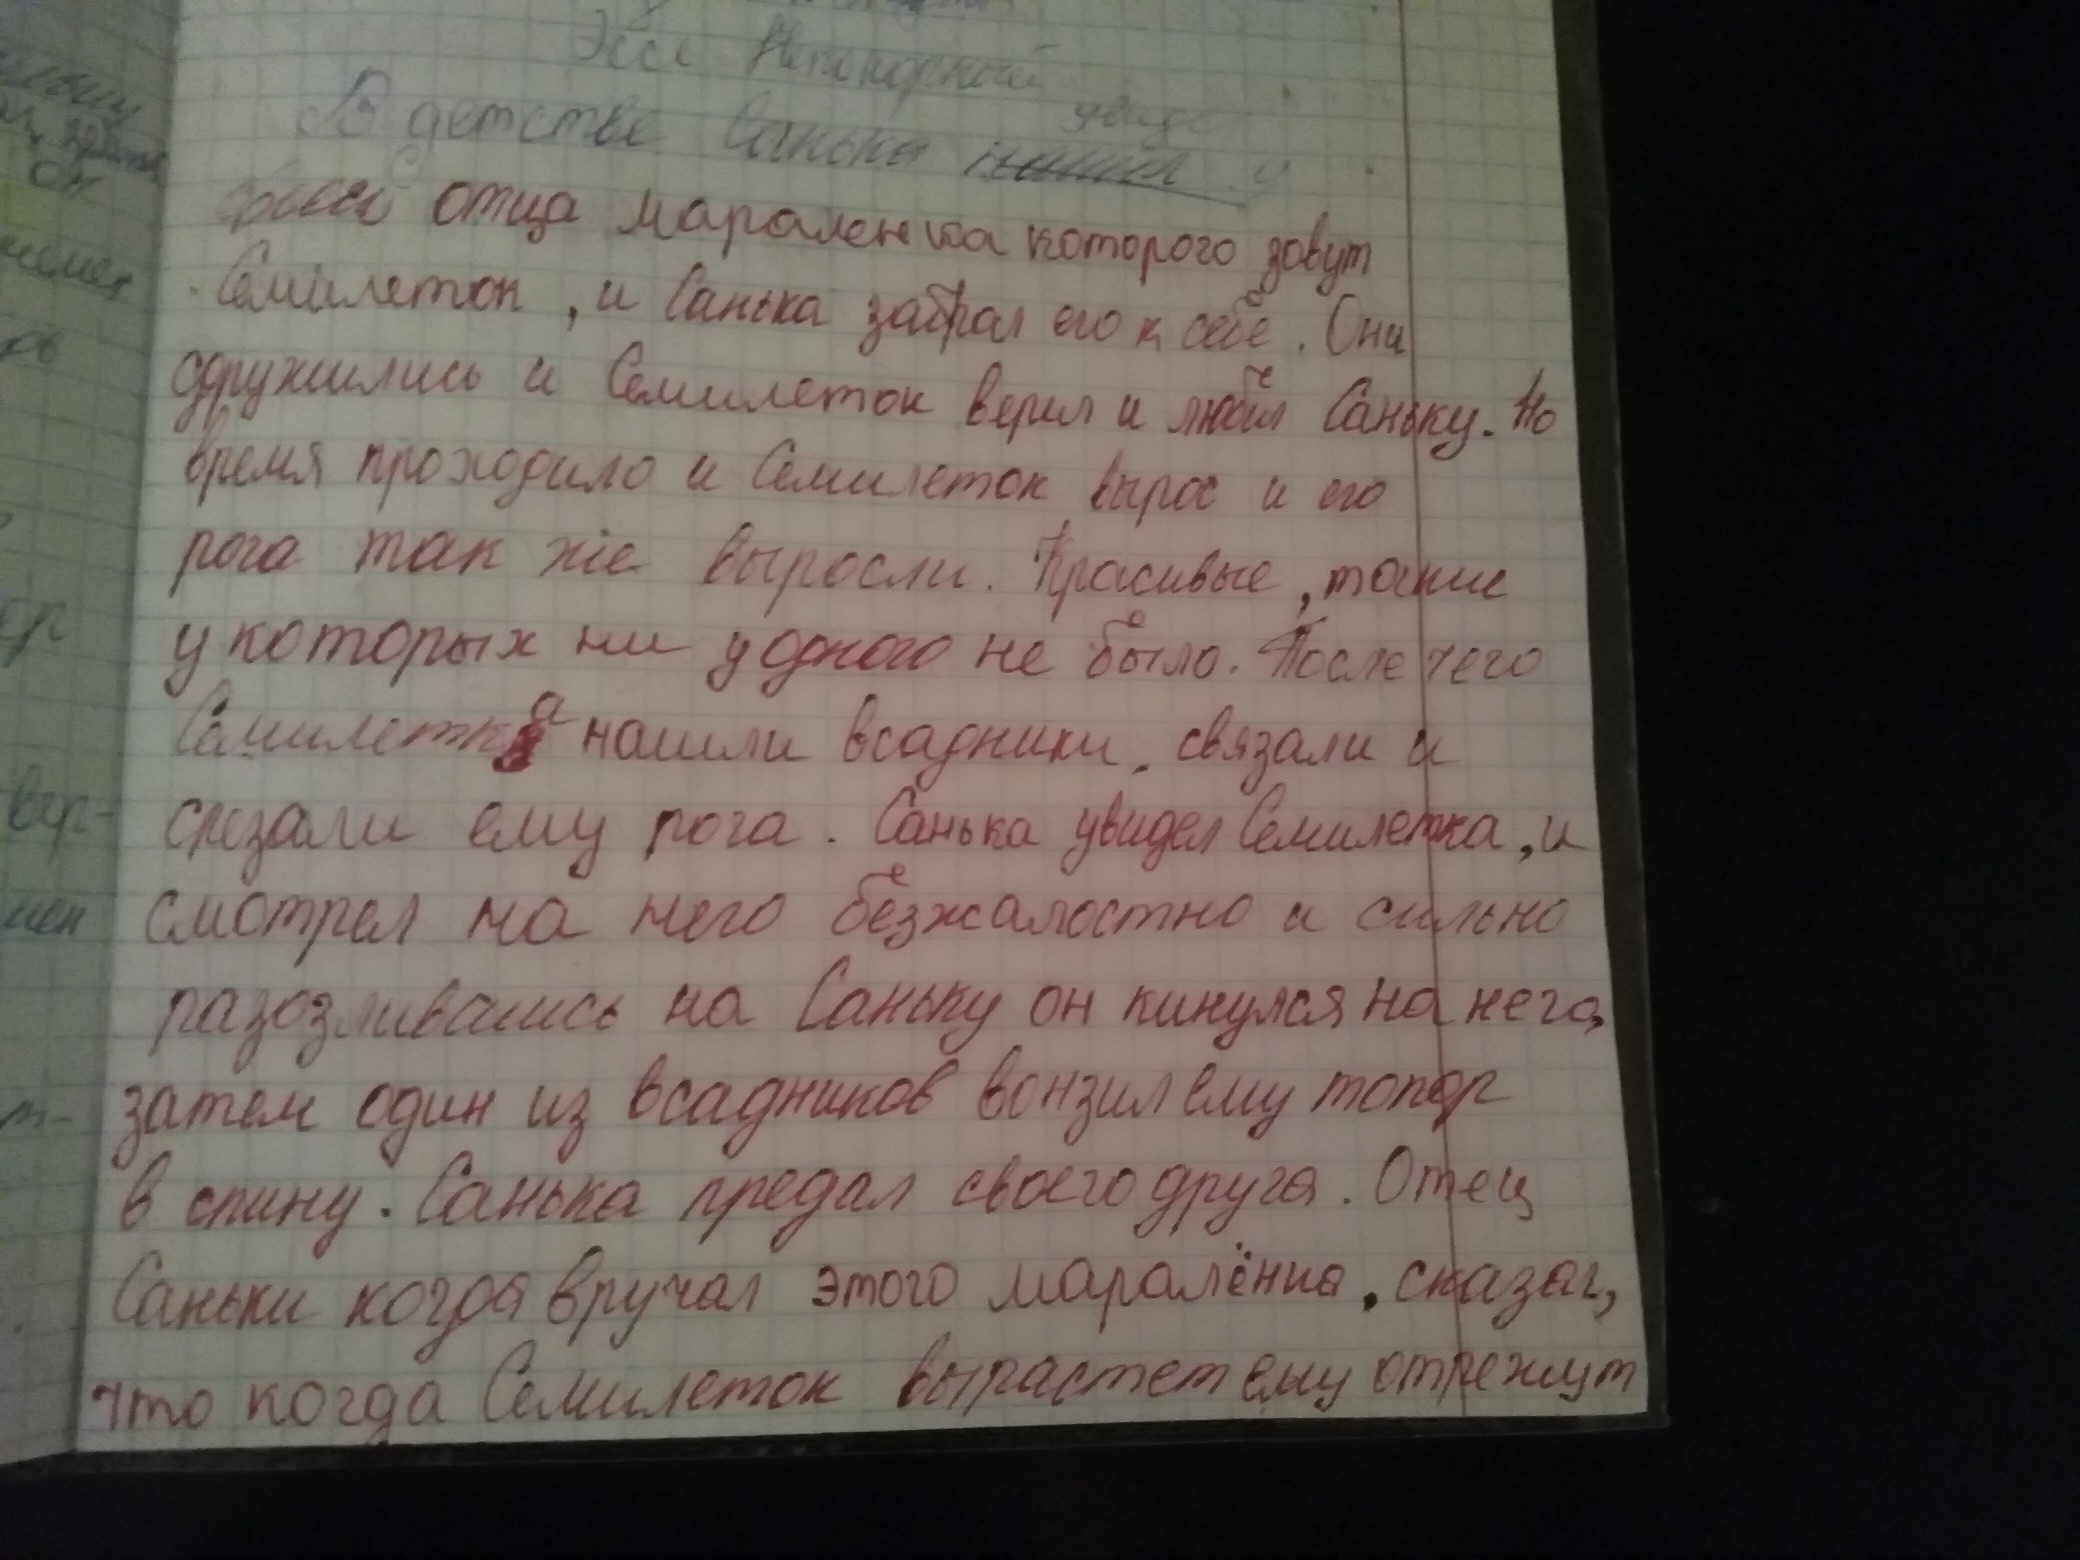 Эссе Непокорный
В детстве Санька увидел у
своего отца мараленка которого зовут
Семилеток, и Санька забрал его к себе. Они
сдружились и Семилеток верил и любил Саньку. Но
время проходило и Семилеток вырос и его
рога так же выросли. Красивые, такие
у которых ни у одного не было. После чего
Семилетка нашли всадники, связали и
срезали ему рога. Санька увидел Семилетка, и
смотрел на него безжалостно и сильно
разозлившись на Саньку он кинулся на него,
затем один из всадников вонзил ему топор
в спину. Санька предал своего друга. Отец
Саньки когда вручал этого маралёнка, сказал,
что когда Семилеток вырастет ему отрежут